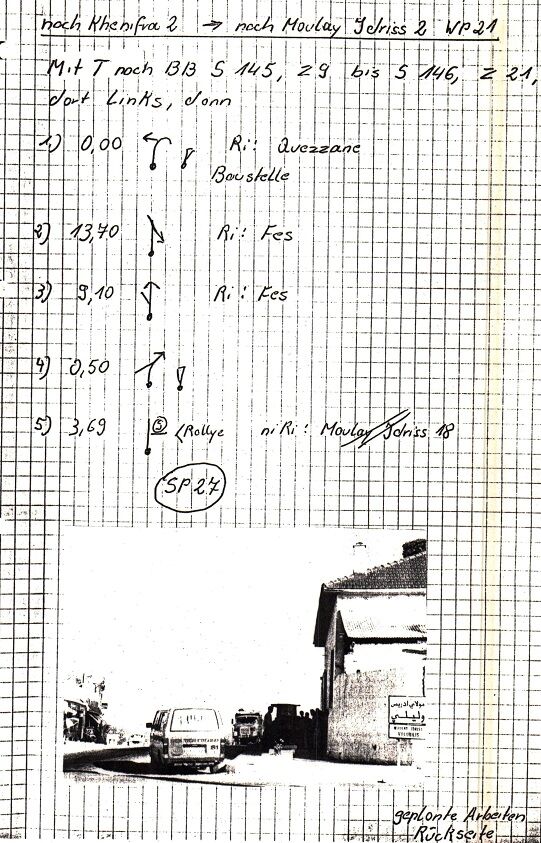 nach Khenifra 2 → nach Moulay Idriss 2 WP 21
Mit T nach BB S 145, Z 9 bis S 146, Z 21,
dort Links, dann
1) 0,00 Ri: Quezzane
Baustelle
2) 13,70 Ri: Fes
3) 9,10 Ri: Fes
4) 0,50
5) 3,69 S <Rallye niRi: Moulay Idriss 18
SP 27
مولاي ادريس
وليلي
MOULAY IDRISS
VOLUBILIS
geplante Arbeiten
Rückseite